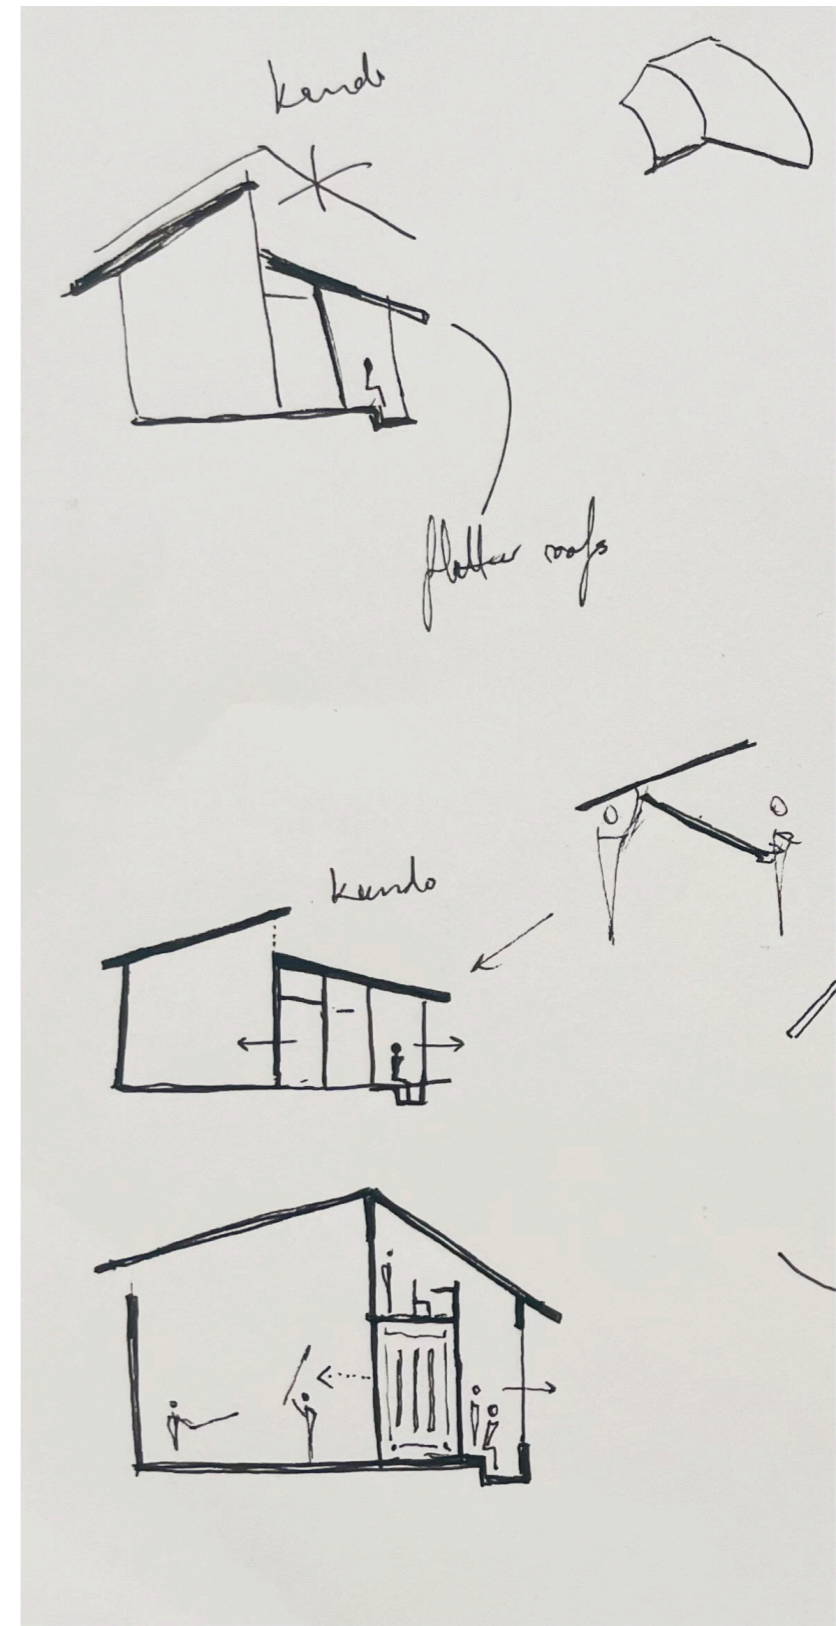 kendo
flatter roofs
kendo